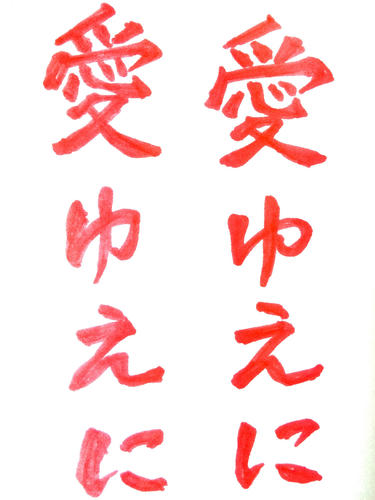 愛ゆえに
愛ゆえに